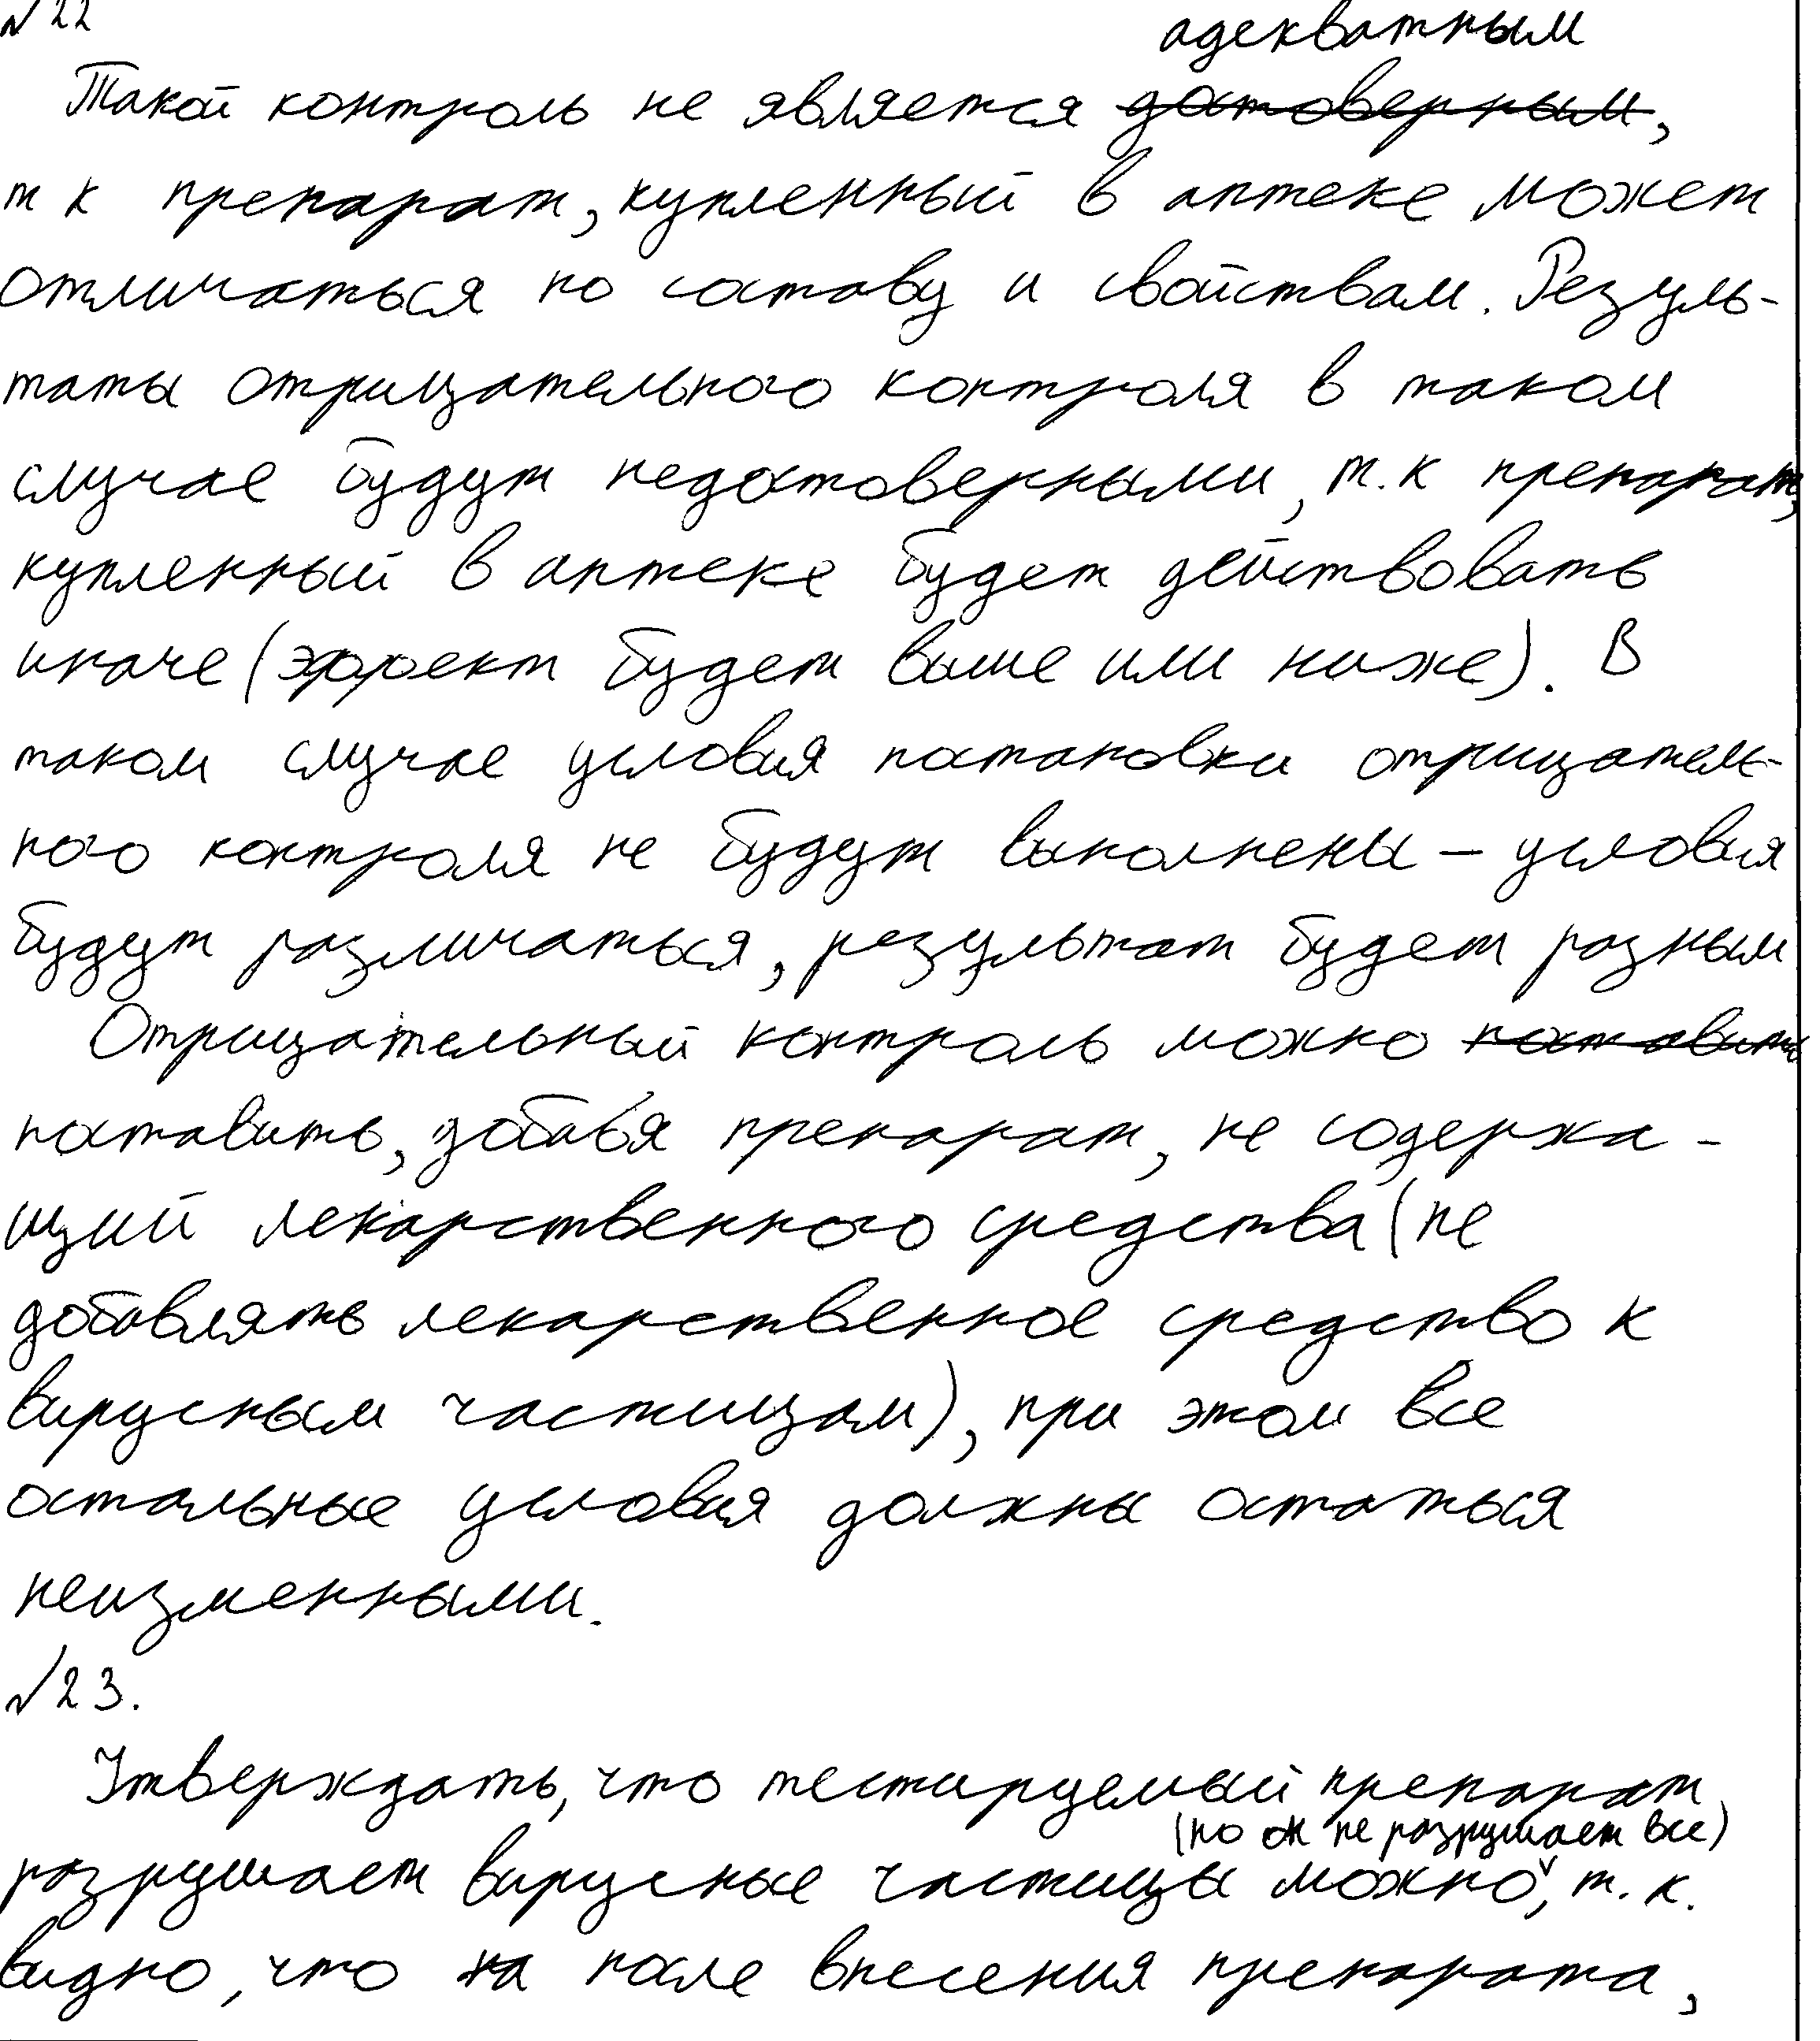 №22
адекватным
Такой контроль не является достоверным,
т к препарат, купленный в аптеке может
отличаться по составу и свойствам. Резуль-
таты отрицательного контроля в таком
случае будут недостоверными, т.к препарат,
купленный в аптеке будет действовать
иначе (эффект будет выше или ниже). В
таком случае условия постановки отрицатель-
ного контроля не будут выполнены – условия
будут различаться, результат будет разным
Отрицательный контроль можно поставить
поставить, добавя препарат, не содержа-
щий лекарственного средства (не
добавлять лекарственное средство к
вирусным частицам), при этом все
остальные условия должны остаться
неизменными.
№23.
Утверждать, что тестируемый препарат
(но он не разрушает все)
разрушает вирусные частицы можно, т. к.
видно, что на после внесения препарата,